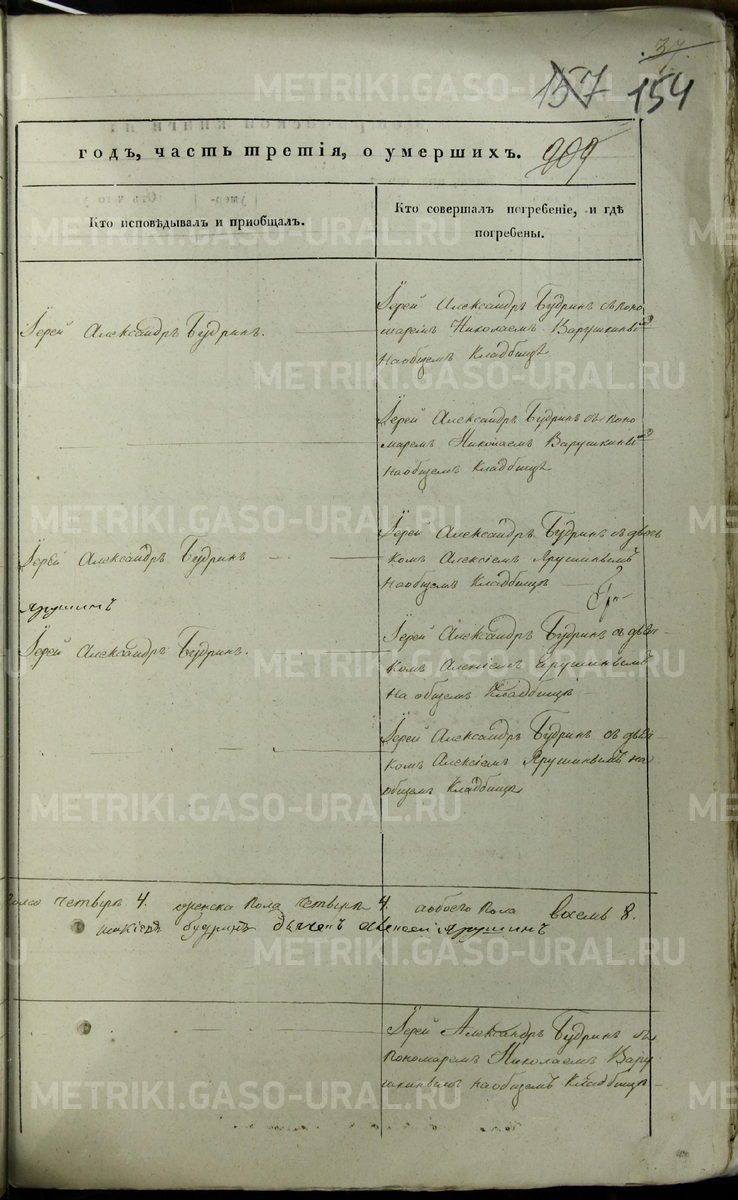 157 154
годъ, часть третія, о умершихъ. 909
Кто исповѣдывалъ и приобщалъ.
Кто совершалъ погребеніе, и гдѣ
погребены.
Іерей Александръ Будринъ.
Іерей Александръ Будринъ съ поно
маремъ Николаемъ Варушкинымъ
на общемъ Кладбищѣ
Іерей Александръ Будринъ съ поно
маремъ Николаемъ Варушкинымъ
на общемъ Кладбищѣ
Іерей Александръ Будринъ
Іерей Александръ Будринъ съ дьяч
комъ Алексіемъ Ярушинымъ
на общемъ Кладбищѣ
Ярушинъ
Іерей Александръ Будринъ.
Іерей Александръ Будринъ съ дьяч
комъ Алексіемъ Ярушинымъ
на общемъ Кладбищѣ
Іерей Александръ Будринъ съ дьяч
комъ Алексіемъ Ярушинымъ на
общемъ Кладбищѣ
четыре 4. женска пола четыре 4. а обоего пола восемь 8.
Будринъ дьячекъ Алексеи Ярушинъ
Іерей Александръ Будринъ съ
пономаремъ Николаемъ Вару
шкинымъ на общемъ Кладбищѣ
METRIKI.GASO-URAL.RU